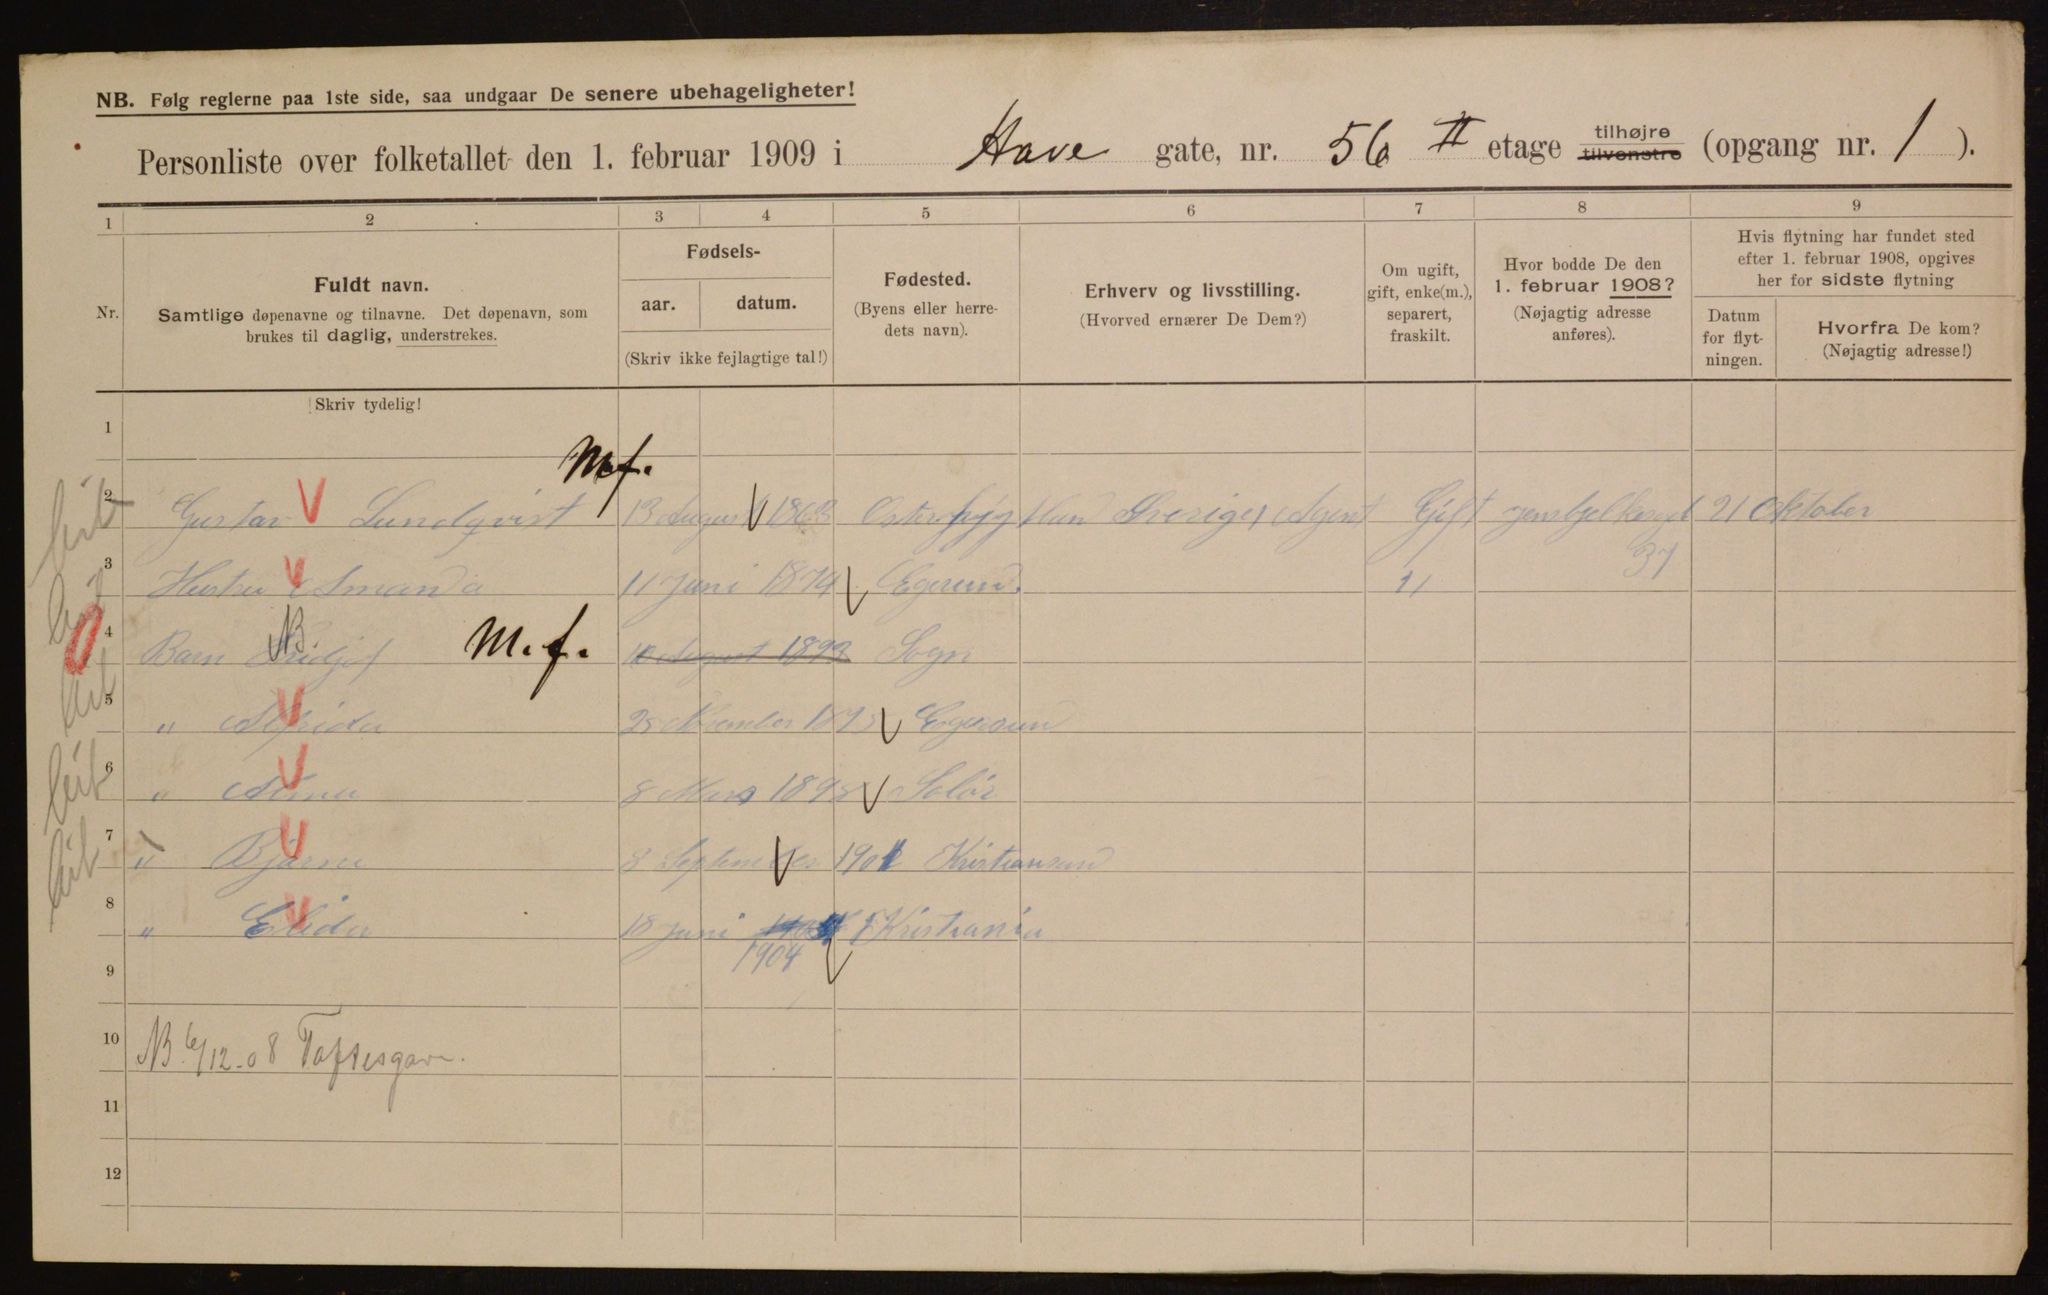 NB. Følg reglerne paa 1ste side, saa undgaar De senere ubehageligheter!
Personliste over folketallet den 1. februar 1909 i Have gate, nr. 56 II etage tilhøjre tilvenstre (opgang nr. 1 ).
1 2 3 4 5 6 7 8 9
Nr.
Fuldt navn.
Samtlige døpenavne og tilnavne. Det døpenavn, som
brukes til daglig, understrekes.
Fødsels-
aar. datum.
(Skriv ikke fejlagtige tal!)
Fødested.
(Byens eller herre-
dets navn).
Erhverv og livsstilling.
(Hvorved ernærer De Dem?)
Om ugift,
gift, enke(m.),
separert,
fraskilt.
Hvor bodde De den
1. februar 1908?
(Nøjagtig adresse
anføres).
Hvis flytning har fundet sted
efter 1. februar 1908, opgives
her for sidste flytning
Datum
for flyt-
ningen.
Hvorfra De kom?
(Nøjagtig adresse!)
Skriv tydelig!
1
M.f.
2 Gustav Lundqvist 13 August 1863 Sverige Agent Gift 21 Oktober
37
3 Hustru Amanda 11 Juni 1874 Egersund "
4 Barn Fridjof NB M.f. 10 August 1893 Sogn
5 " Alfrida 28 November Egersund
6 " Anna 8 Mars 1898 Solør
7 " Bjarne 8 September 1901 Kristiansund
8 " Elida 18 Juni 1904 Kristiania
9
10 NB. 6/12-08 Toftesgave.
11
12